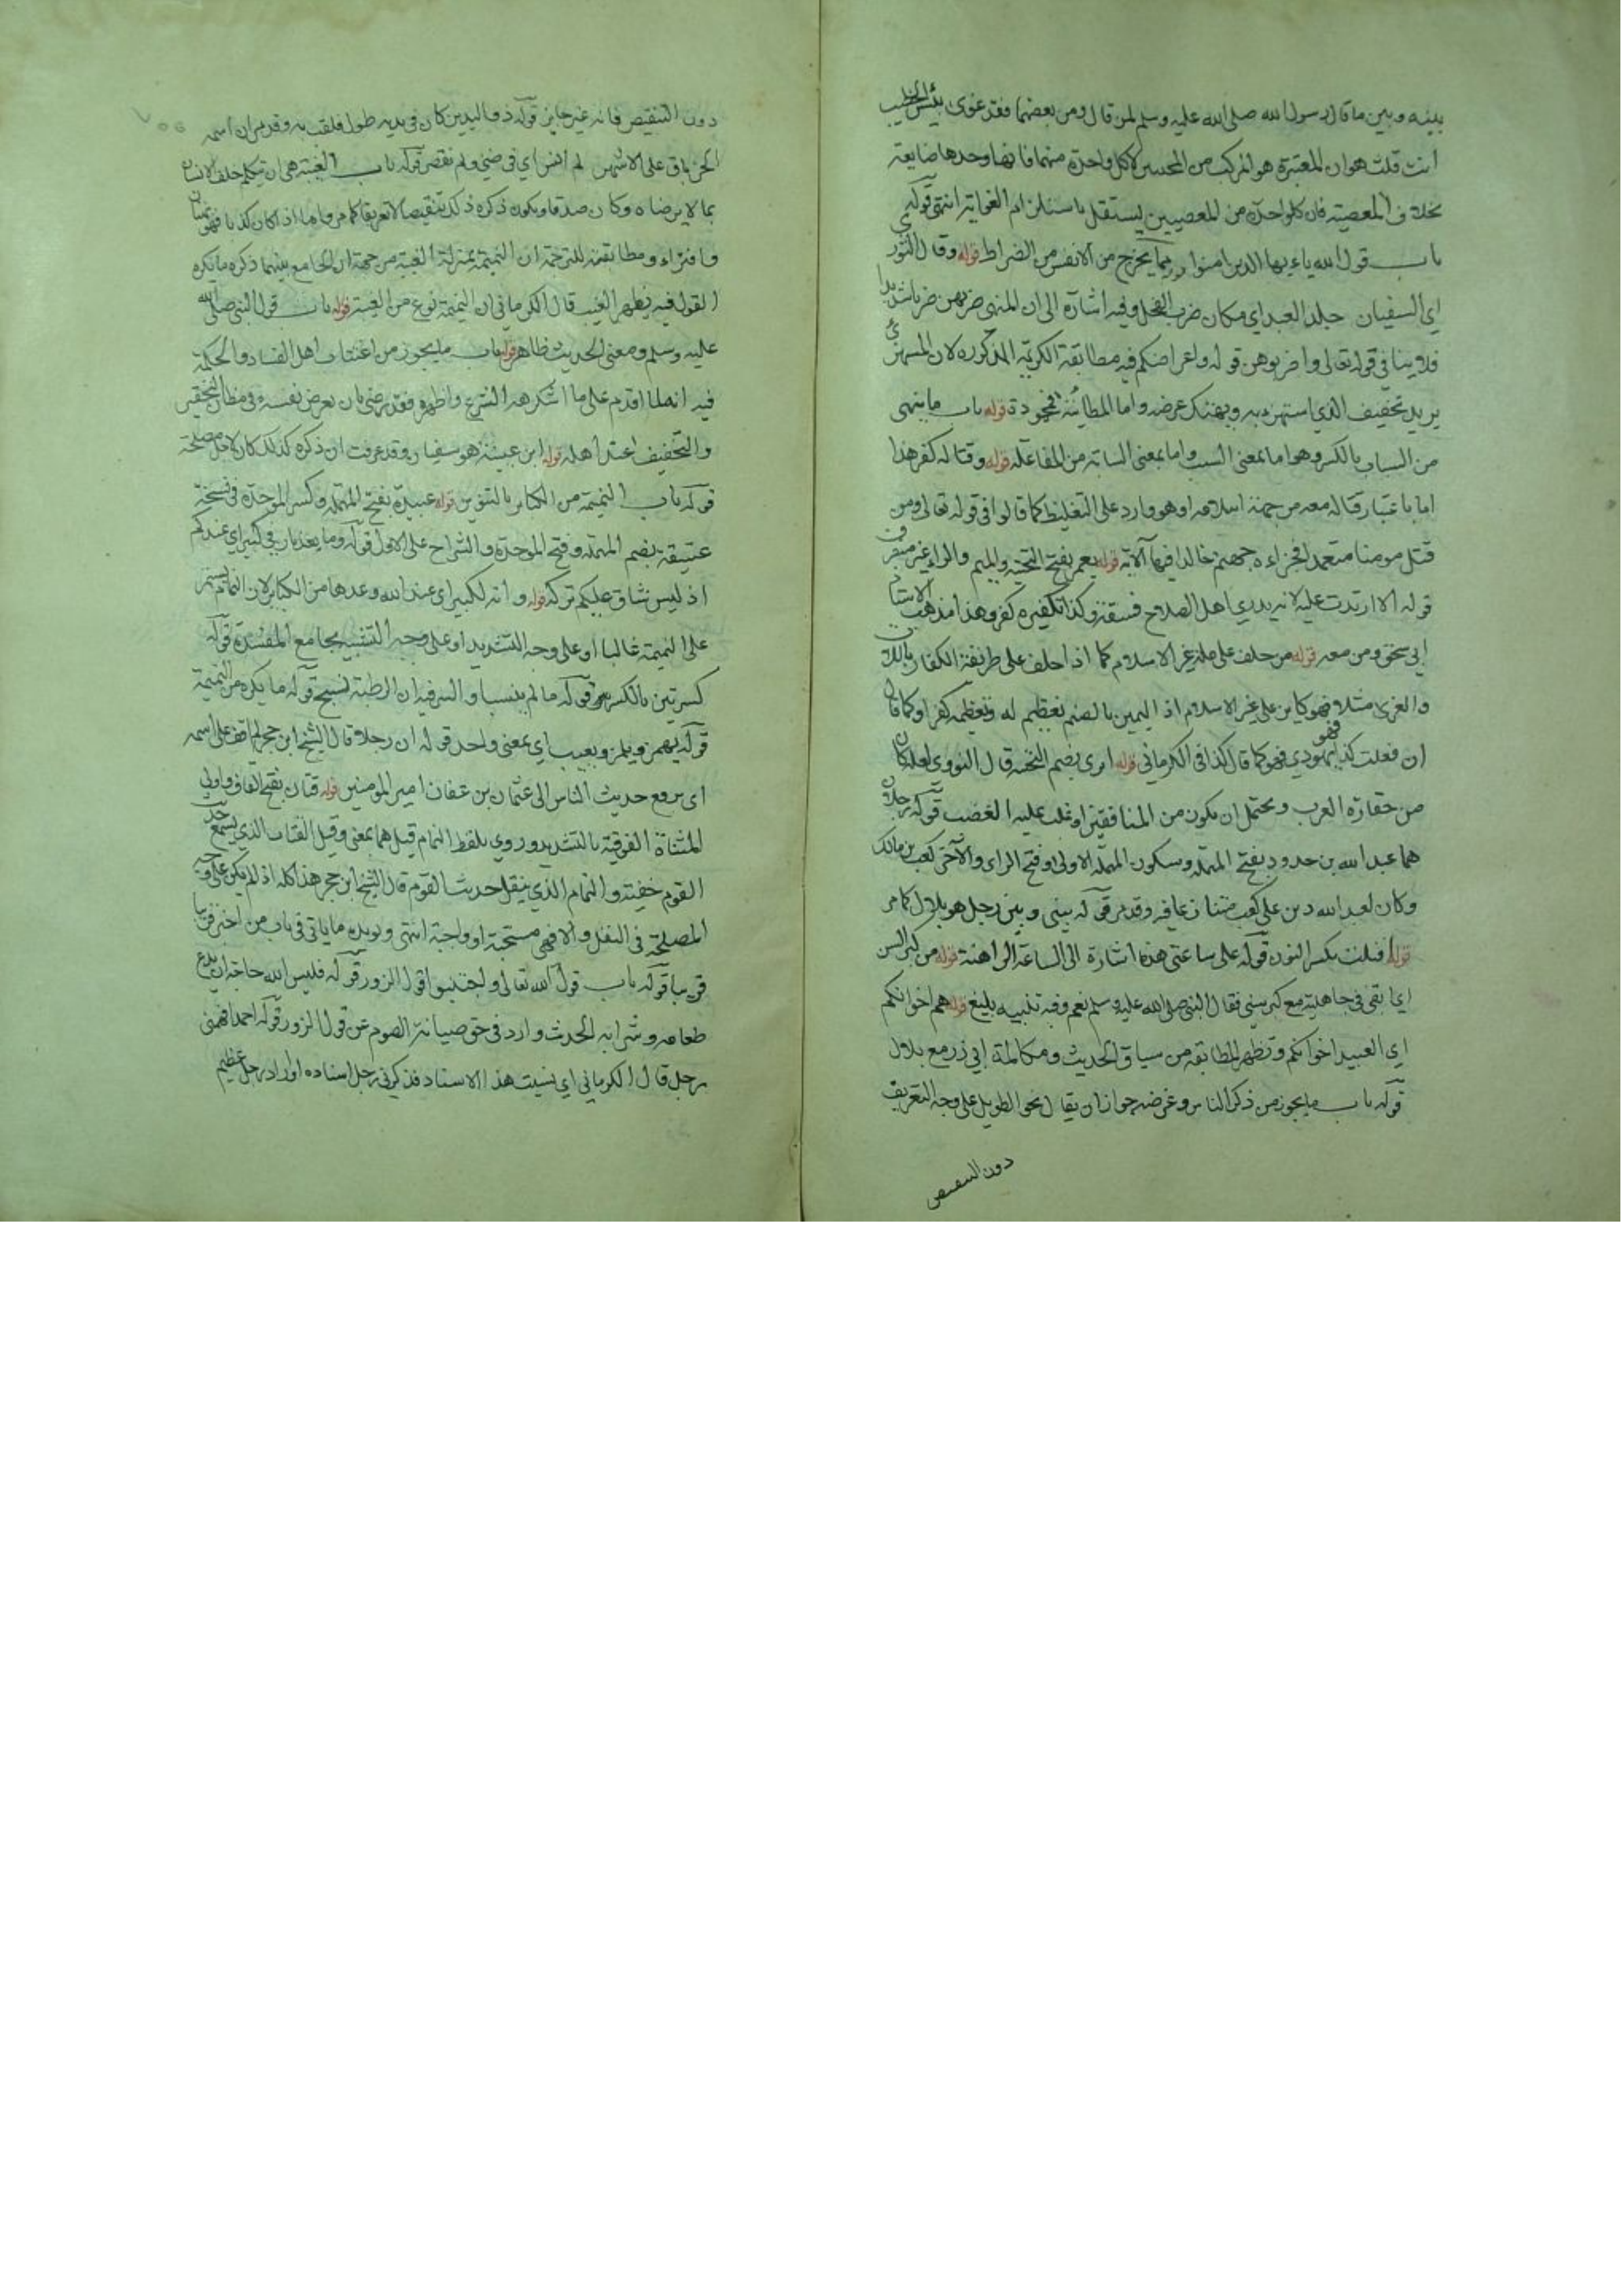 بينه وبين ما قال رسول الله صلى الله عليه وسلم لمن قال ومن بعضهما فقد غوى بئس الخطيب
أنت قلت هو ان المعتبرة هو المركب من المحبتين لا كل واحدة منهما فانها وحدها ضايعة
بخلاف المعصية فان كلواحدة من المعصيين يستقل باستلزام الغواية انتهى قوله
باب قول الله ياءيها الذين امنوا مما يخرج من الانفس من الضراط قوله وقال الثوري
اي السفيان جلد العبد اي مكان ضرب الفحل وفيه اشارة الى ان المنهى ضربهن ضربا شديدا
فلا ينافي قوله تعالى واضربوهن قوله واعراضكم فيه مطابقة الكريمة المذكورة لان المستهزئ
يريد تخفيف الذي استهزء به وبهتك عرضه واما قوله باب ما ينهى
من السباب بالكسر وهو اما بمعنى السب واما بمعنى السابة من المفاعلة قوله وقتاله كفر هذا
اما باعتبار قتاله معه من جهة اسلامه او هو وارد على التغليظ كما قالوا في قوله تعالى ومن
قتل مومنا متعمدا فجزاءه جهنم خالدا فيها الآية قوله يعمر بفتح التحتية والميم والراء غير منصرف
قوله الا ارتدت عليه لانه يدري اهل الصلاح فسقه وكذا تكفيره كفر وهذا مذهب الاستاد
ابي سحق ومن معه قوله من حلف على ملة غير الاسلام كما اذا حلف على طريقة الكفار باللات
والعزى مثلا فهو كاين على غير الاسلام اذ اليمين بالصنم تعظيم له وتعظيمه كفر او كما قال
ان فعلت كذا فهو يهودي فهو كما قال كذا في الكرماني قوله امرى بضم التحتية قال النووي لعله كان
من حقارة العرب ويحتمل ان يكون من المنافقين او غلب عليه الغضب قوله رجلان
هما عبد الله بن حدود بفتح المهملة وسكون المهملة الاولى وفتح الراى والآخر كعب بن مالك
وكان لعبد الله دين على كعب فتنازعا فيه وقد مر قوله بيني وبين رجل هو بلال كما مر
قوله افنلت بكسر النون قوله على ساعتي هذه اشارة الى الساعة الراهنة قوله من كبر السن
اي ابقى في جاهلية مع كبر سني فقال النبي صلى الله عليه وسلم نعم وفيه تنبيه بليغ قوله هم اخوانكم
اي العبيد اخوانكم وتظهر المطابقة من سياق الحديث ومكالمة ابي ذر مع بلال
قوله باب ما يجوز من ذكر الناس وغرضه جواز ان يقال نحو الطويل على وجه التعريف
دون التنقيص
دون التنقيص فانه غير جايز قوله ذو اليدين كان في يديه طول فلقب به وقد مر ان اسمه
الخرباق على الاشهر لم انس اي في ضني ولم تقصر قوله باب الغيبة هي ان تتكلم خلف الانسان
بما لا يرضاه وكان صدقا ويكون ذكره ذلك تنقيصا لا تعريفا كما مر واما اذا كان كذبا فهو بهتان
وافتراء ومطابقته للترجمة ان النميمة بمنزلة الغيبة من جهة ان الجامع بينهما ذكره ما يكره
القول فيه بظهر الغيب قال الكرماني ان النميمة نوع من الغيبة قوله باب قول النبي صلى الله
عليه وسلم ومعنى الحديث ظاهر قوله باب ما يجوز من اغتياب اهل الفساد والحكمة
فيه انه لما اقدم على ما انكرهه الشرع واظهره فقد رضي بان يعرض نفسه في مظان التحقير
والتخفيف عند اهله قوله ابن عيينة هو سفيان وقد عرفت ان ذكره كذلك كان لاجل مصلحة
قوله باب النميمة من الكبائر بالتنوين قوله عبيدة بفتح المهملة وكسر الموحدة في نسخة
عتيقة بضم المهملة وفتح الموحدة والشراح على الاول قوله وما يعذبان في كبير اي عندكم
اذ ليس شاق عليكم تركه قوله وانه لكبير اي عند الله وعدها من الكبائر لان النمام يستمر
على النميمة غالبا او على وجه التشديد او على وجه التشبيه بجامع المفسدة قوله
كسرتين بالكسر قوله ما لم ييبسا والسر فيه ان الرطبة تسبح قوله ما يكره من النميمة
قوله يهمز ويلمز ويعيب اي بمعنى واحد قوله ان رجلا قال الشيخ ابن حجر لم اقف على اسمه
اى يرفع حديث الناس الى عثمان بن عفان امير المومنين قوله قتات بفتح القاف واولى
المثناة الفوقية بالتشديد وروي بلفظ النمام قيل هما بمعنى وقيل القتات الذي يسمع حديث
القوم خفية والنمام الذي ينقل حديث القوم قال الشيخ ابن حجر هذا كله اذا لم يكن على وجه
المصلحة في النقل والا فهي مستحبة او واجبة انتهى ويويده ما ياتي في باب من اخبر
قريبا قوله باب قول الله تعالى واجتنبوا قول الزور قوله فليس لله حاجة ان يدع
طعامه وشرابه الحديث وارد في حق صيانة الصوم عن قول الزور قوله احمد افهمني
رجل قال الكرماني اي نسيت هذا الاسناد فذكرني رجل اسناده او اراد رجل عظيم